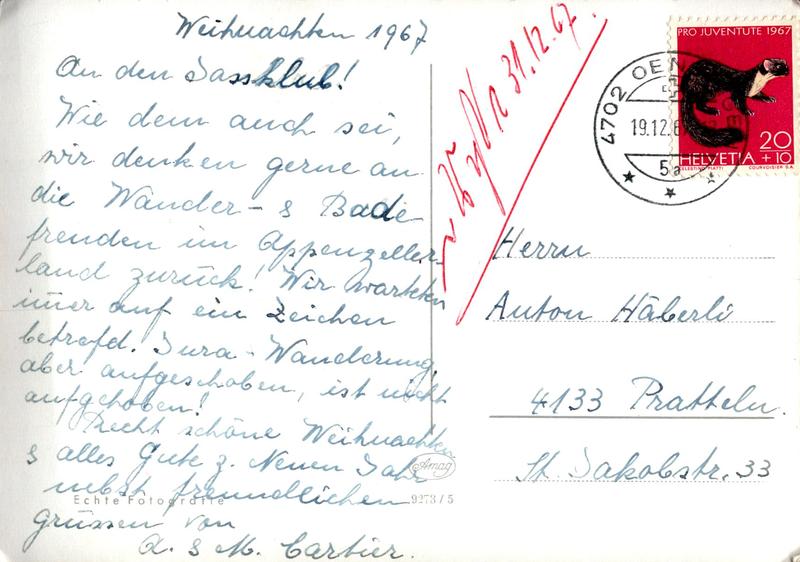 Weihnachten 1967
An den Jassklub!
Wie dem auch sei,
wir denken gerne an
die Wander- & Bade
freuden im Appenzeller-
land zurück! Wir warteten
im̄er auf ein Zeichen
betrefd. Jura-Wanderung,
aber aufgeschoben, ist nicht
aufgehoben!
Recht schöne Weihnachten
& alles Gute z. Neuen Jahr
nebst freundlichen
Grüssen von
A. & M. Cartier.
Echte Fotografie
Amag
9278/5
31.12.67
4702 OEN
19.12.6
5a
PRO JUVENTUTE 1967
20
HELVETIA +10
CELESTINO PIATTI
COURVOISIER S.A.
Herrn
Anton Häberli
4133 Pratteln.
St. Jakobstr. 33